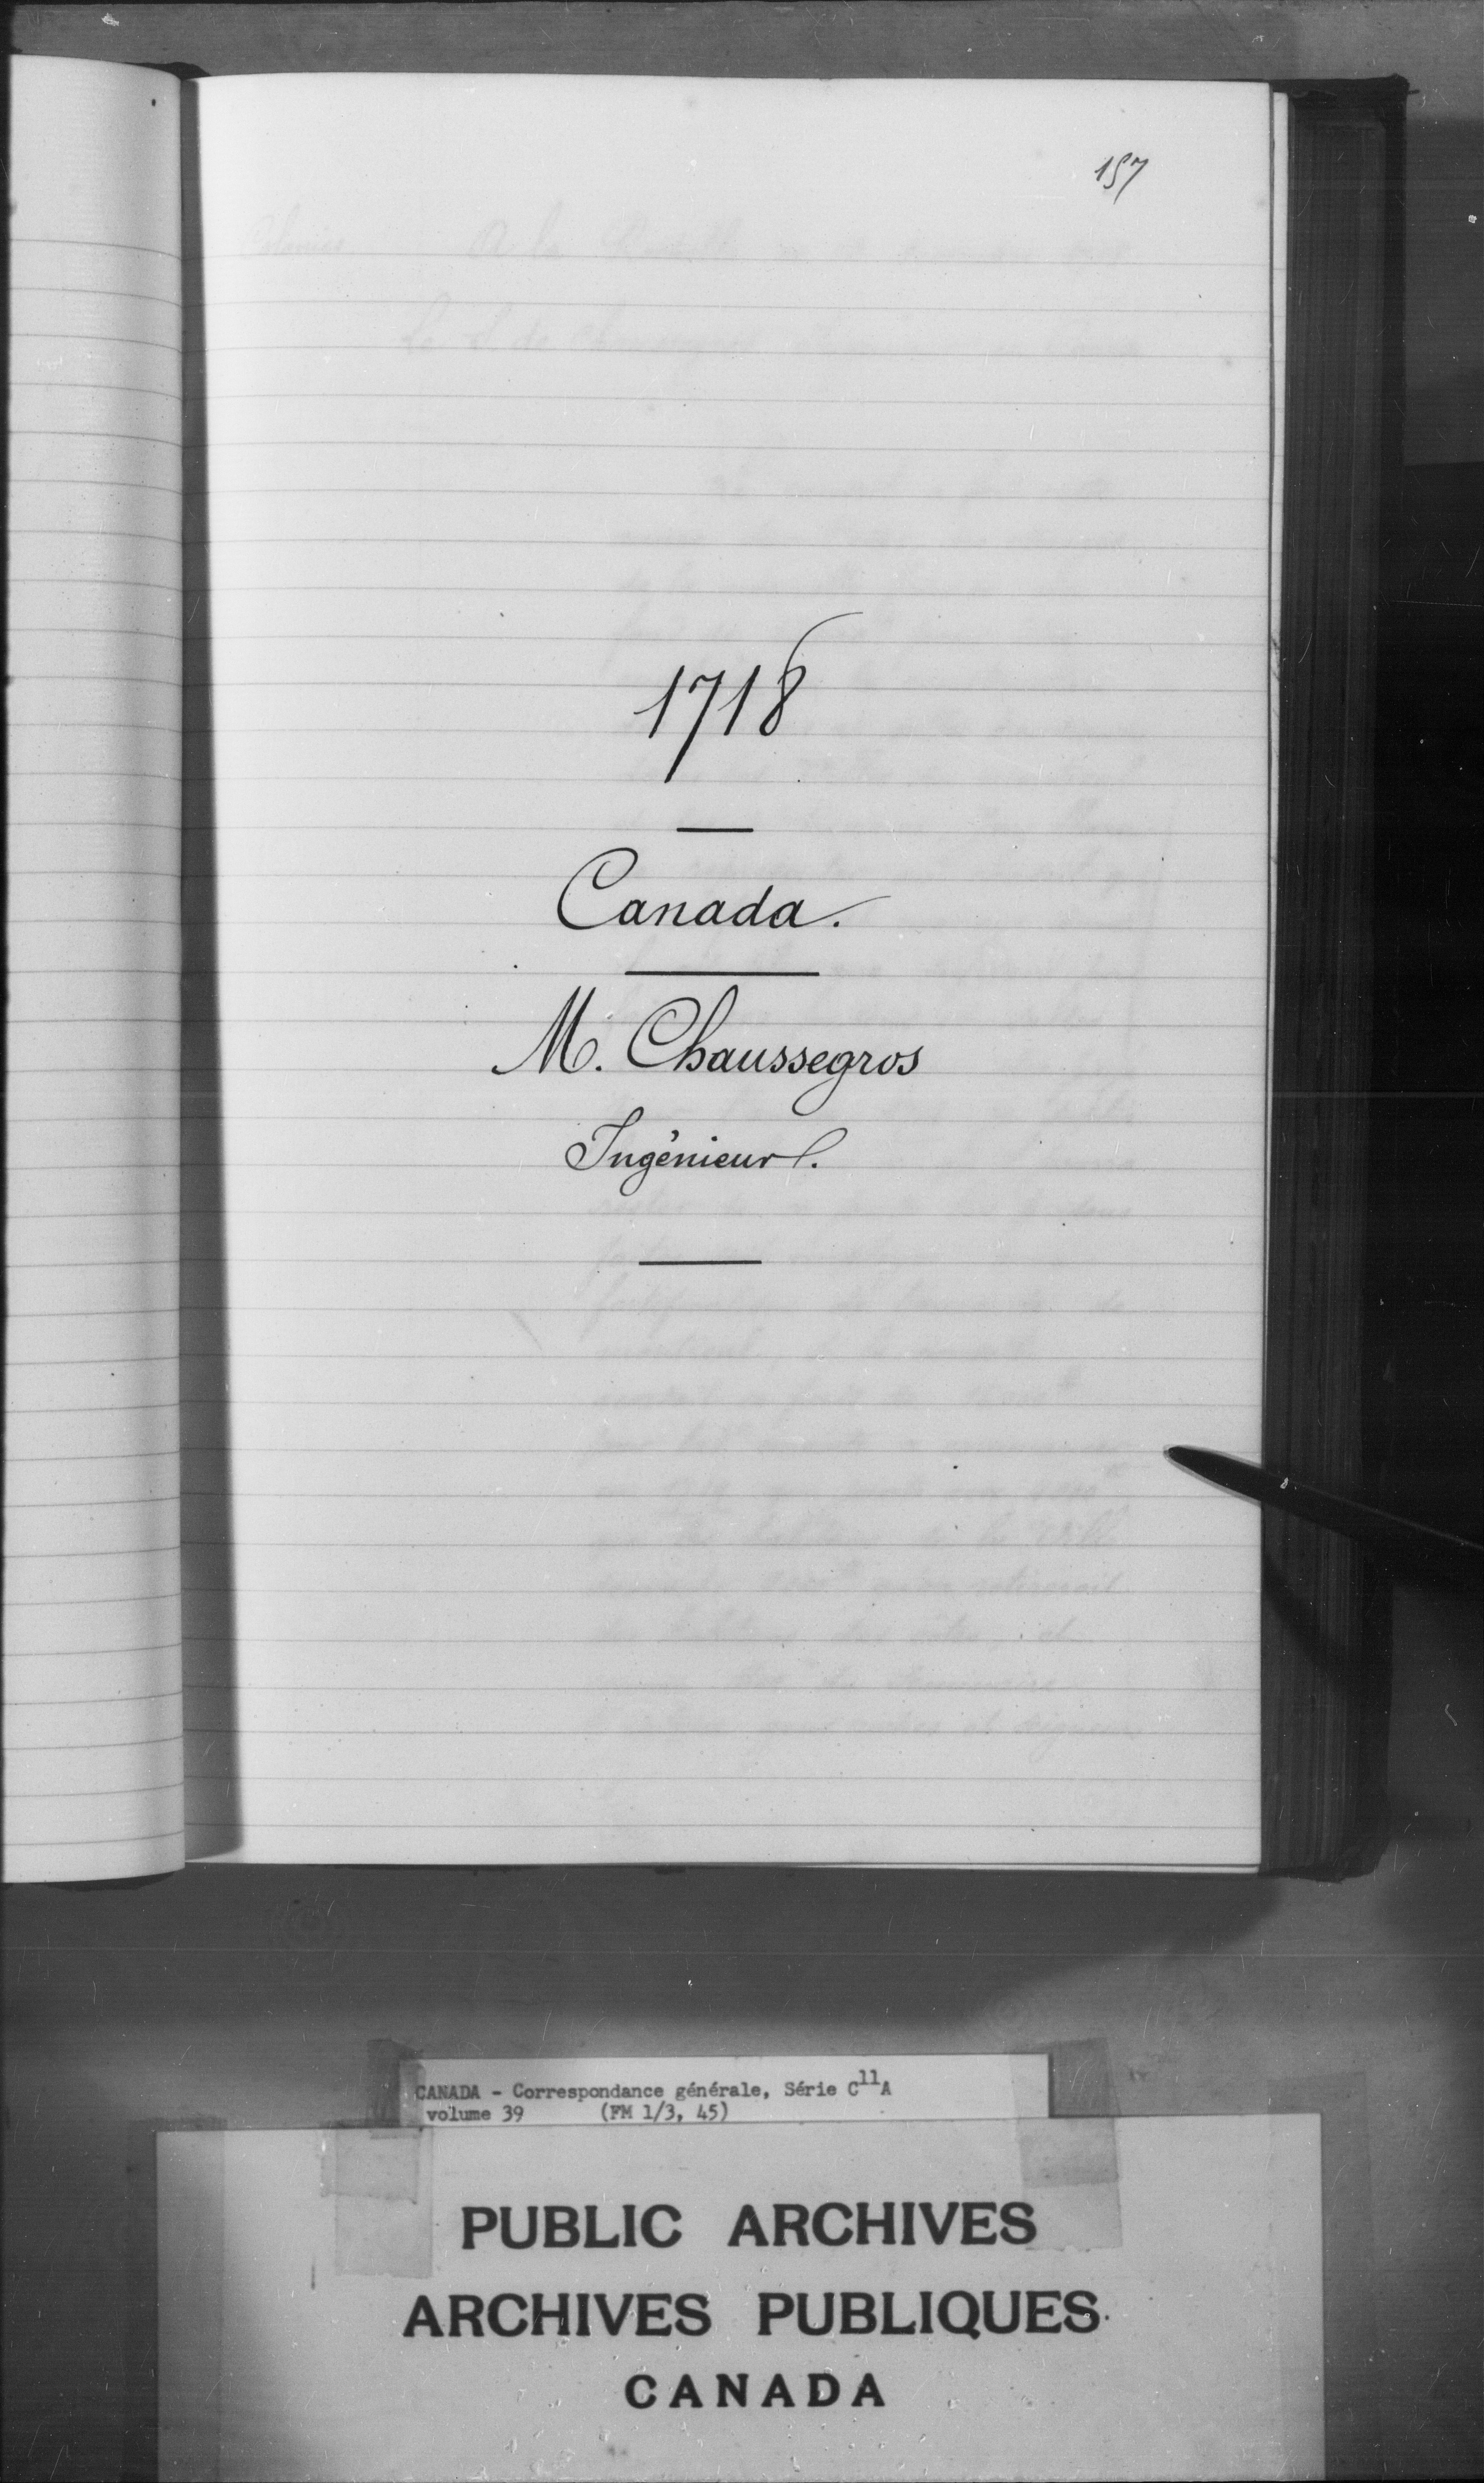 157
1718
Canada.
M. Chaussegros
Ingénieur.
CANADA - Correspondance générale, Série C11A
volume 39 (FM 1/3, 45)
PUBLIC ARCHIVES
ARCHIVES PUBLIQUES
CANADA